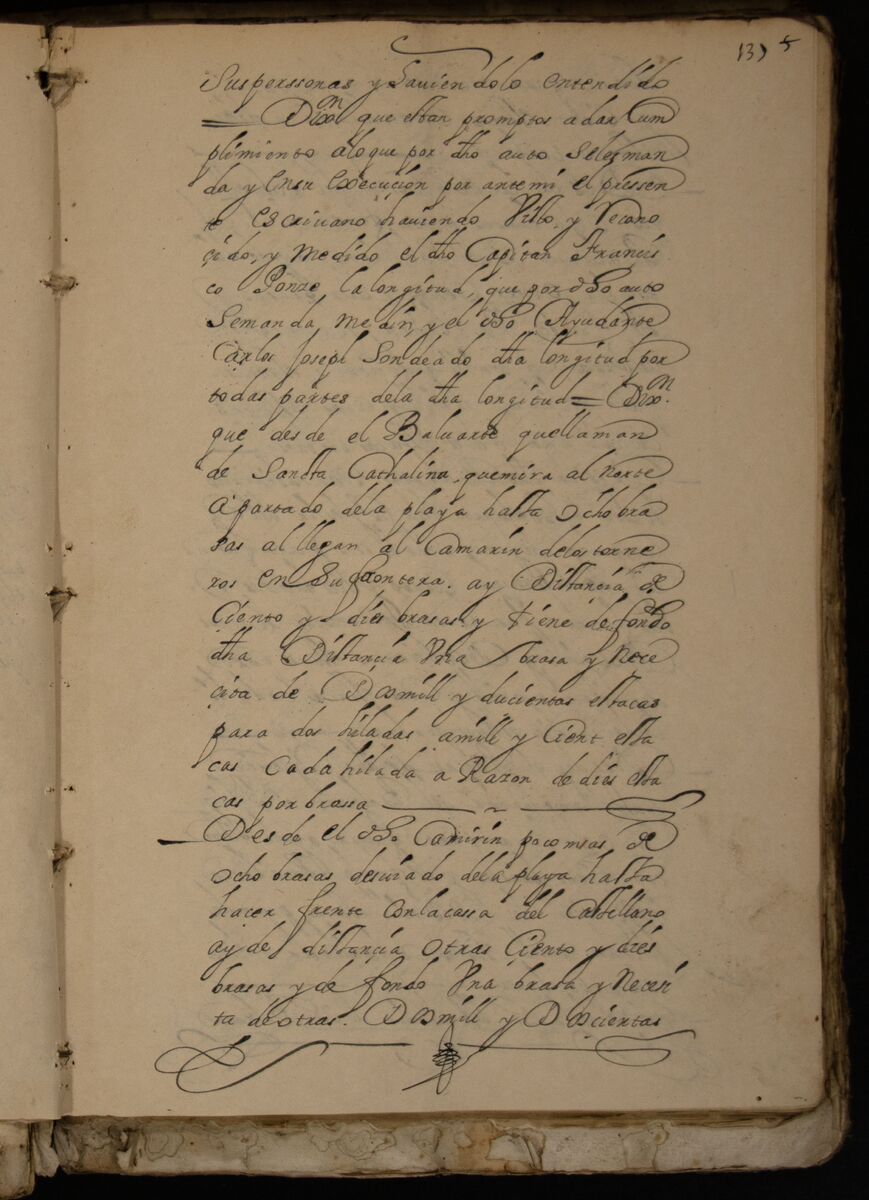 139 5
Suspersonas y haviendolo entendido
= Dixn que estan promptos adar Cum
plimiento aloque por dho auto Seles man
da y ensu execución por antemi el pressen
te escriuano haviendo Visto, y Recono
çido, y medido el dho Capitan Francis
co Ponze la longitud, que por dho auto
Semanda medir, y el dho Ayudante
Carlos Joseph Sondeado dha longitud por
todas partes dela dha longitud = Dixn.
que desde el Baluarte quellaman
de Sancta Cathalina, quemira al norte
apartado dela playa hasta ocho bra
sas al llegar al Camarin delos torne
ros en Sufrontera. ay Distancia de
Ciento y dies brasas y tiene de fondo
dha Distancia Vna brasa y Nece
çita de Dosmill y ducientas estacas
para dos hiladas amill y Cient esta
cas Cada hilada a Razon de dies esta
cas por brassa
Desde el dho Camirin pocomas de
ocho brasas desuiado dela playa hasta
hacer frente conlacassa del Castellano
ay de distancia otras Ciento y dies
brasas y de fondo Vna brasa y Neceçi
ta de otras. Dosmill y Doscientas